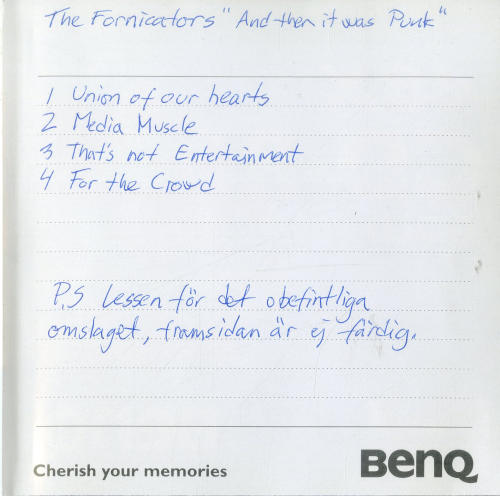 The Fornicators "And then it was Punk"
1 Union of our hearts
2 Media Muscle
3 That's not Entertainment
4 For the Crowd
P.S Lessen för det obefintliga
omslaget, framsidan är ej färdig.
Cherish your memories
BenQ